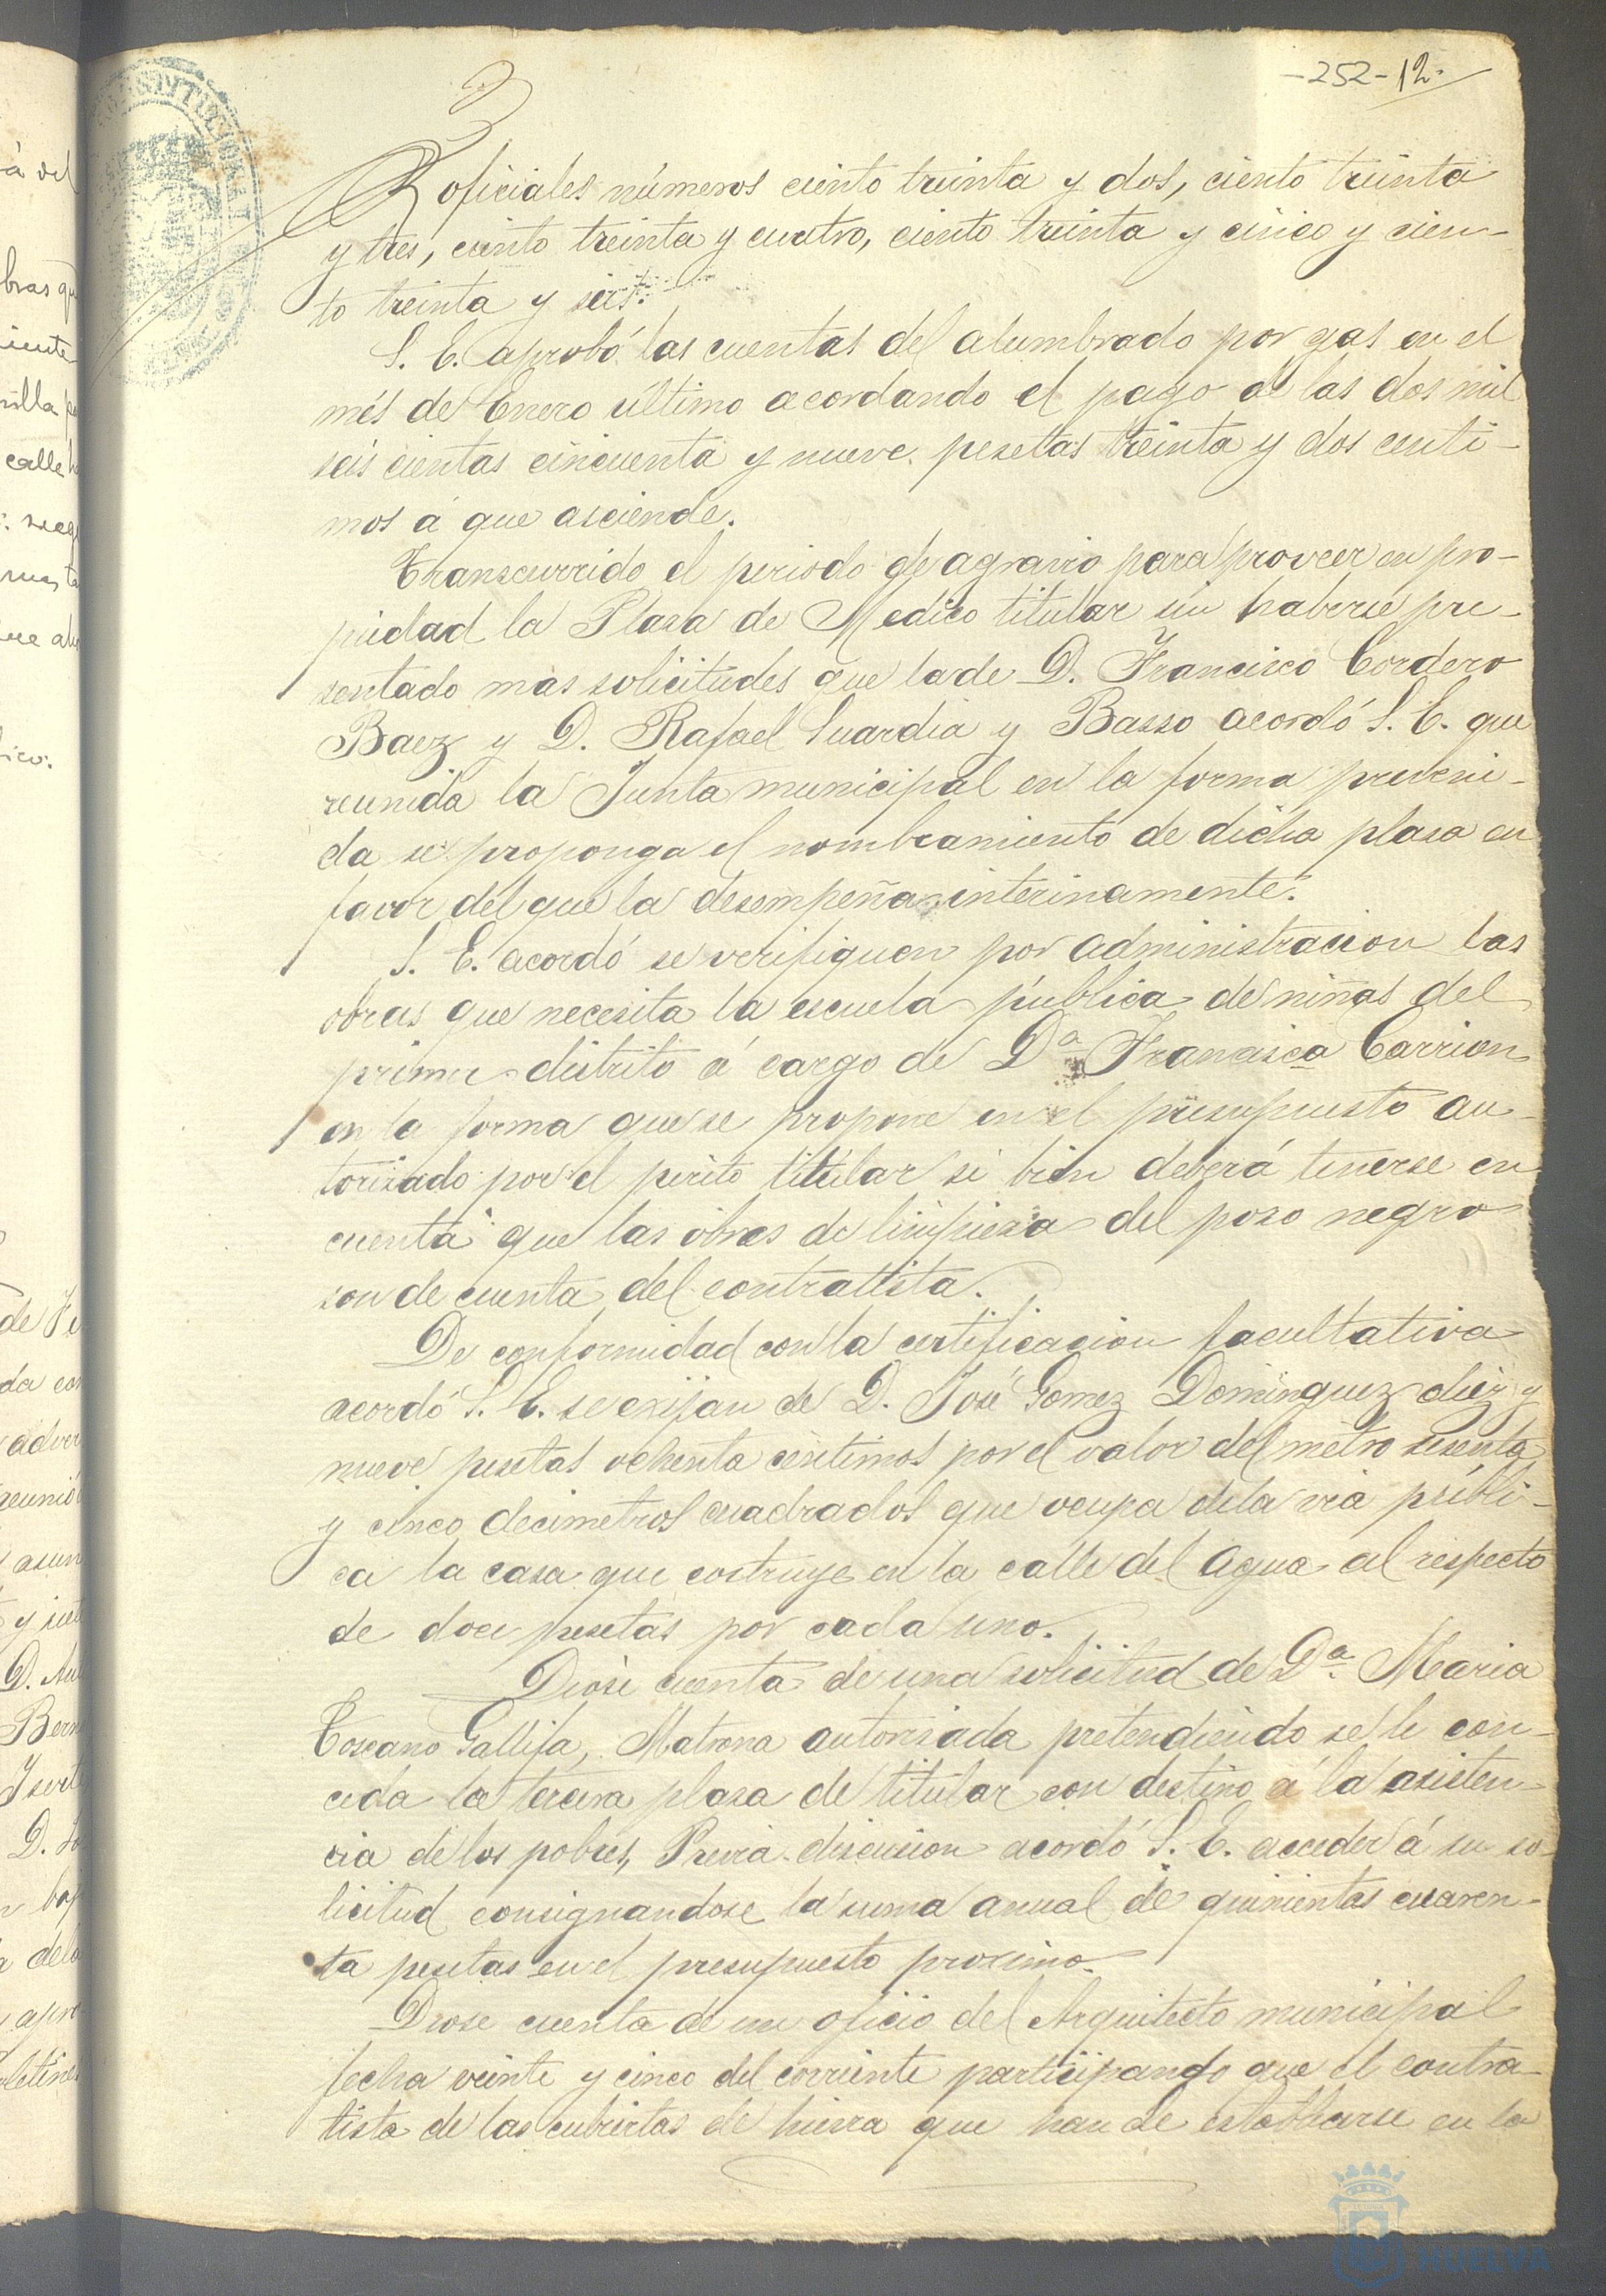 -252-12-
oficiales números ciento treinta y dos, ciento treinta
y tres, ciento treinta y cuatro, ciento treinta y cinco y cien-
to treinta y seis.
S. E. aprobó las cuentas del alumbrado por gas en el
més de Enero último acordando el pago de las dos mil
seis cientas cincuenta y nueve pesetas treinta y dos centi-
mos á que asciende.
Transcurrido el periodo de agravio para proveer en pro-
piedad la Plasa de Medico titular sin haberse pre-
sentado mas solicitudes que la de D. Francisco Cordero
Baez y D. Rafael Guardia y Basso acordó S. E. que
reunida la Junta municipal en la forma preveni-
da se proponga el nombramiento de dicha plasa en
favor del que la desempeña interinamente.
S. E. acordó se verifiquen por administracion las
obras que necesita la escuela pública de niñas del
primer distrito á cargo de Dª Francisca Carrion
en la forma que se propone en el presupuesto au-
torisado por el perito titular si bien deberá tenerse en
cuenta que las obras de limpiesa del poso negro
son de cuenta del contratista.
De conformidad con la certificacion facultativa
acordó S. E. se exijan de D. José Gomez Dominguez diez y
nueve pesetas ochenta centimos por el valor del metro sesenta
y cinco decimetros cuadrados que ocupa de la via públi-
ca la casa que costruye en la calle del Agua al respecto
de doce pesetas por cada uno.
Diose cuenta de una solicitud de Dª Maria
Toscano Gallifa, Matrona autorisada pretendiendo se le con-
ceda la tercera plasa de titular con destino á la asisten-
cia de los pobres, Previa discusion acordó S. E. acceder á su so-
licitud consignandose la suma anual de quinientas cuaren-
ta pesetas en el presupuesto proximo.
Diose cuenta de un oficio del Arquitecto municipal
fecha veinte y cinco del corriente participando que el contra-
tista de las cubiertas de hierro que han de establecerse en la
HUELVA